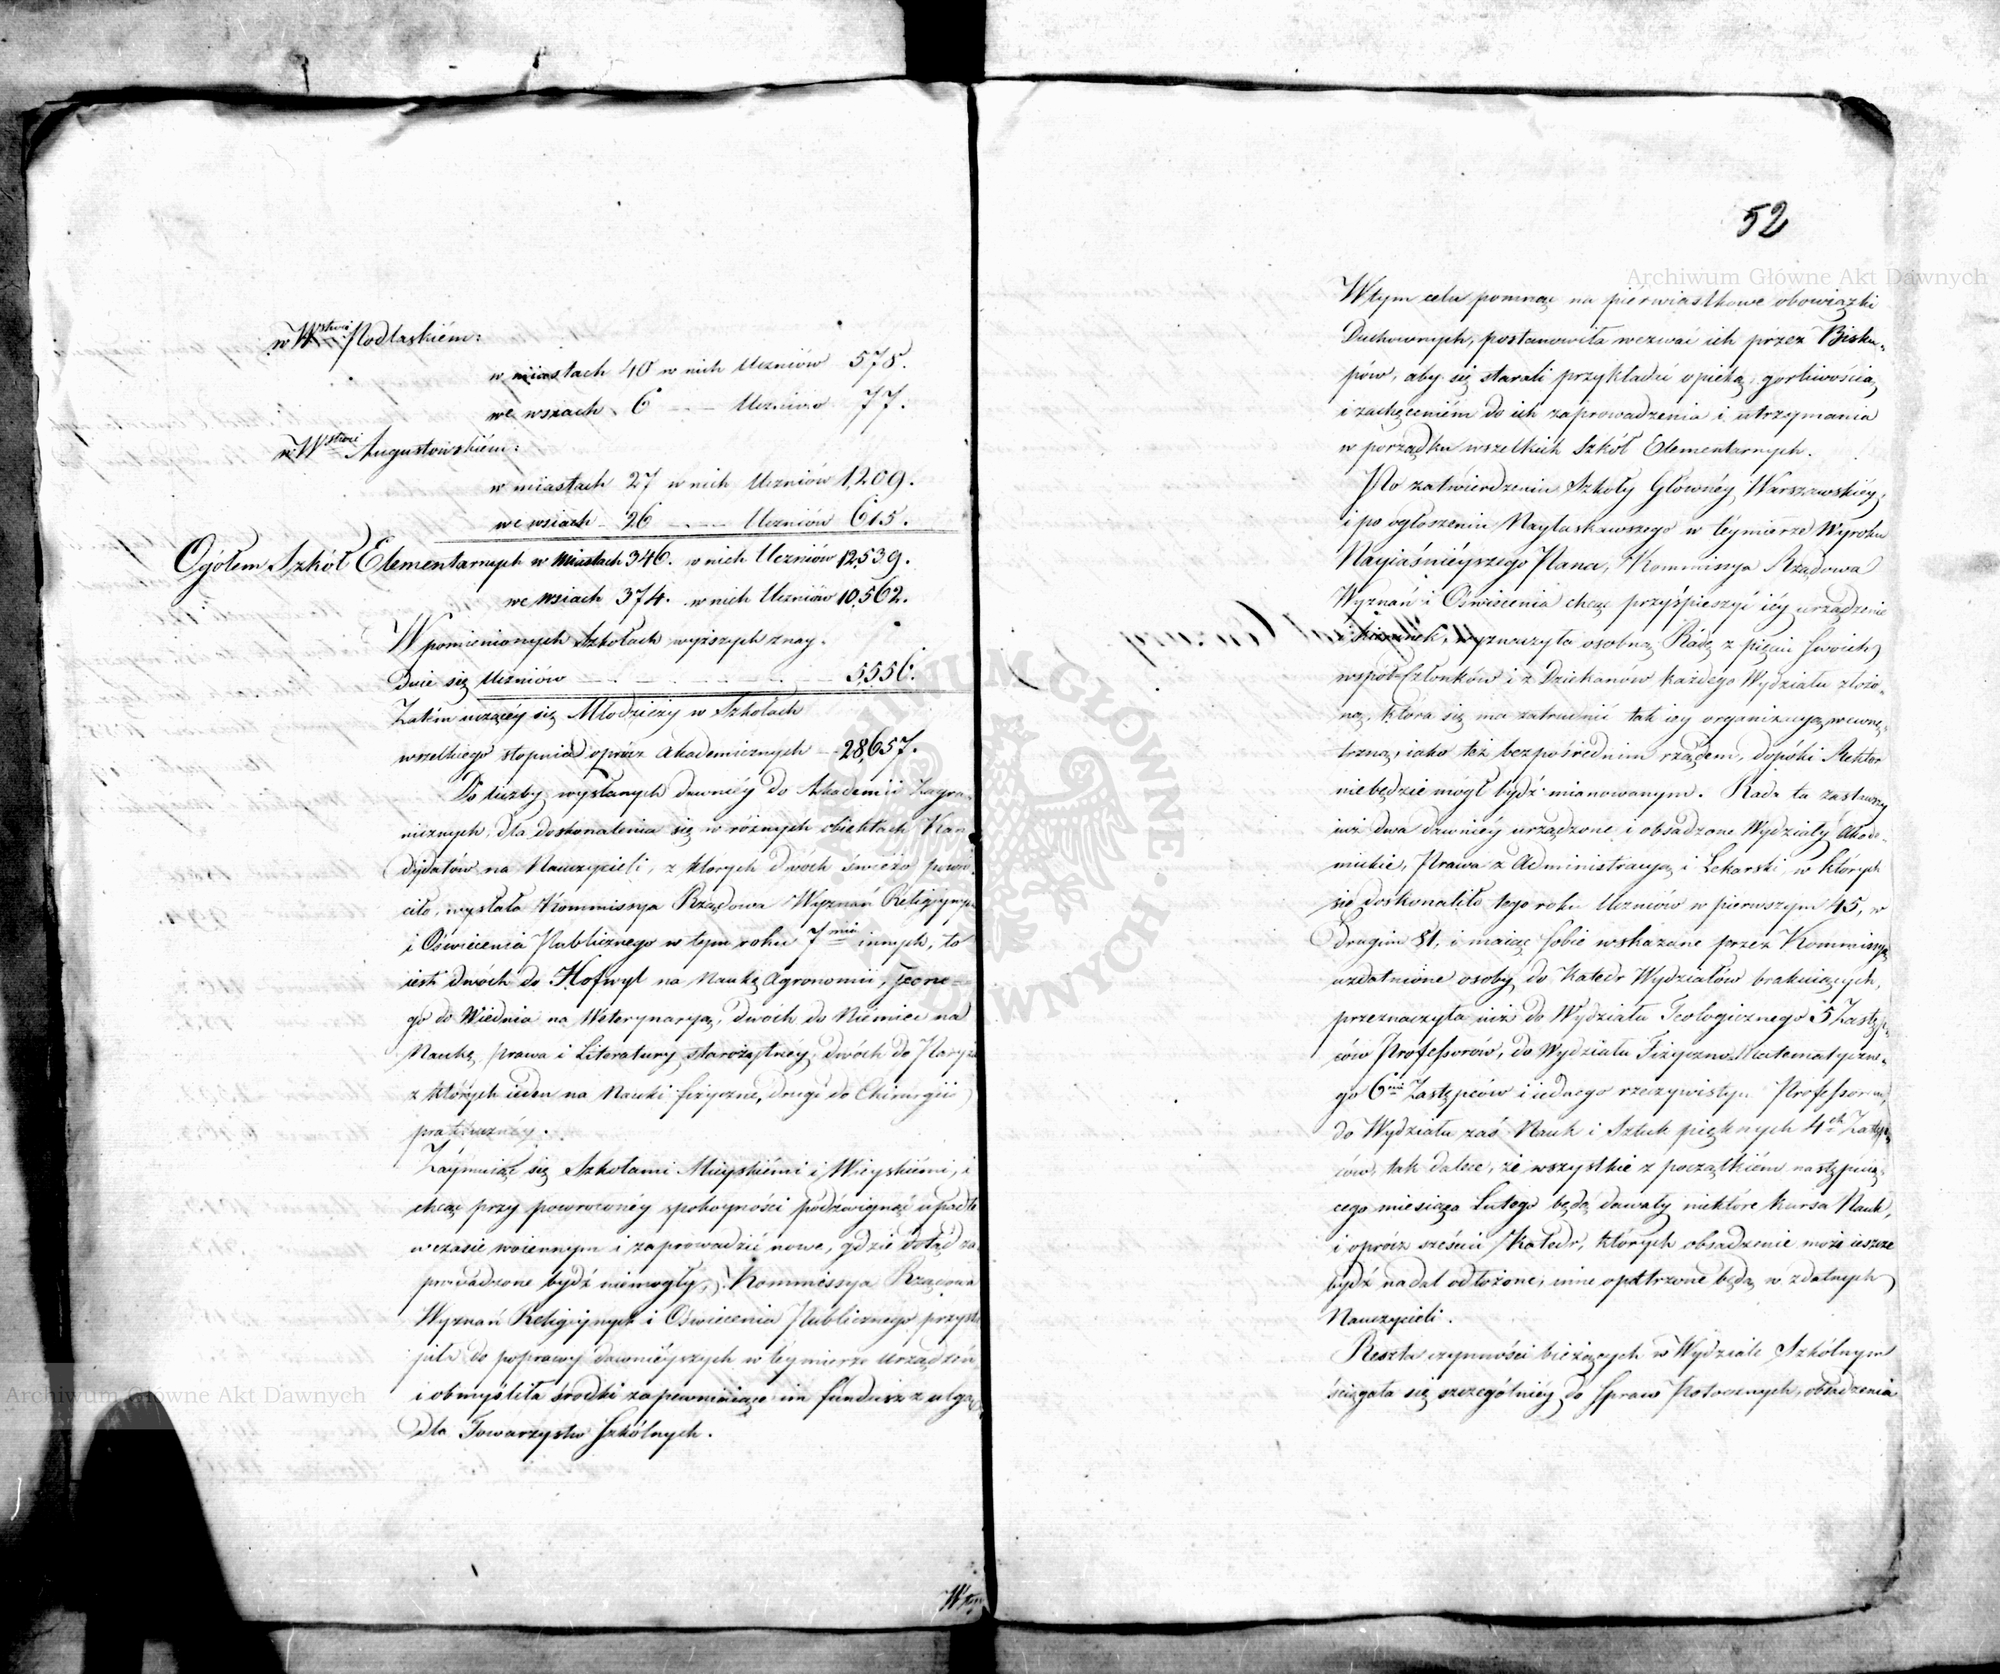 w W<sup>ztwie</sup> Podlaskiém:
w miastach 40 w nich Uczniów 578.
we wsiach 6 — — Uczniów 77.
w W<sup>ztwie</sup> Augustowskiém:
w miastach 27 w nich Uczniów 1,209.
we wsiach 26 — — Uczniów 615.
Ogółem Szkół Elementarnych w Miastach 346. w nich Uczniów 12,539.
we Wsiach 374. w nich Uczniów 10,562.
W pomienionych Szkołach wyższych znay-
duie się Uczniów — — — — 5,556.
Zatém uczącéy się Młodzieży w Szkołach
wszelkiego stopnia oprócz Akademicznych — 28,657.
Do liczby wysłanych dawniéy do Akademii Zagra-
nicznych, dla doskonalenia się w różnych obiektach Kan-
dydatów na Nauczycieli, z których dwóch świeżo powró-
ciło, wysłała Kommissya Rządowa Wyznań Religiynych
i Oświecenia Publicznego w tym roku 7<sup>miu</sup> innych, to
iest dwóch do Hofwyl na Naukę Agronomii, jedne-
go do Wiednia na Weterynaryą, dwóch do Niemiec na
Naukę prawa i Literatury starożytnéy, dwóch do Paryża
z których ieden na Nauki fizyczne, drugi do Chirurgii
praktycznéy.
Zaymuiąc się Szkołami Mieyskiémi i Wieyskiémi, i
chcąc przy powróconéy spokoyności podźwignąć upadłe
w czasie woiennym i zaprowadzić nowe, gdzie dotąd za-
prowadzone bydź niemogły, Kommissya Rządowa
Wyznań Religiynych i Oświecenia Publicznego przystą-
piła do poprawy dawniéyszych w téymierze Urządzeń
i obmyśliła środki zapewniaiące im fundusz z ulgą
dla Towarzystw Szkólnych.
W tym
52
W tym celu pomnąc na piérwiastkowe obowiązki
Duchownych, postanowiła wezwać ich przez Bisku-
pów, aby się starali przykładać opieką, gorliwością,
i zachęceniém do ich zaprowadzenia i utrzymania
w porządku wszelkich Szkół Elementarnych.
Po zatwierdzeniu Szkoły Główney Warszawskiéy,
i po ogłoszeniu Nayłaskawszego w téymierze Wyroku
Nayiaśniéyszego Pana, Kommissya Rządowa
Wyznań i Oświecenia chcąc przyśpieszyć iéy urządzenie
i kierunek, wyznaczyła osobną Radę z pięciu swoich
współ-Członków i z Dziekanów każdego Wydziału złożo-
ną, która się ma zatrudnić tak iey organizacyą wewnę-
trzną, iako też bezpośrednim rządem, dopóki Rektor
niebędzie mógł bydź mianowanym. Rada ta zastawszy
iuż dwa dawniéy urządzone i obsadzone Wydziały Akade-
mickie, Prawa z Administracyą i Lekarski, w których
się doskonaliło tego roku Uczniów w pierwszym 45, w
drugim 81, i maiąc sobie wskazane przez Kommissyą
uzdatnione osoby do Katedr Wydziałów brakuiących,
przeznaczyła iuż do Wydziału Teologicznego 5 Zastęp-
ców Professorów, do Wydziału Fizyczno-Matematyczne-
go 6<sup>ciu</sup> Zastępców i iednego rzeczywistym Professorem,
do Wydziału zaś Nauk i Sztuk pięknych 4<sup>ch</sup> Zastęp-
ców, tak dalece, że wszystkie z początkiém następuią-
cego miesiąca Lutego będą dawały niektóre kursa Nauk,
i oprócz sześciu Katedr, których obsadzenie może ieszcze
bydź nadal odłożone, inne opatrzone będą w zdatnych
Nauczycieli.
Reszta czynności bieżących w Wydziale Szkólnym
ściągała się szczególniéy do Spraw Potocznych, obsadzenia
Archiwum Główne Akt Dawnych
Archiwum Główne Akt Dawnych
ARCHIWUM GŁÓWNE AKT DAWNYCH